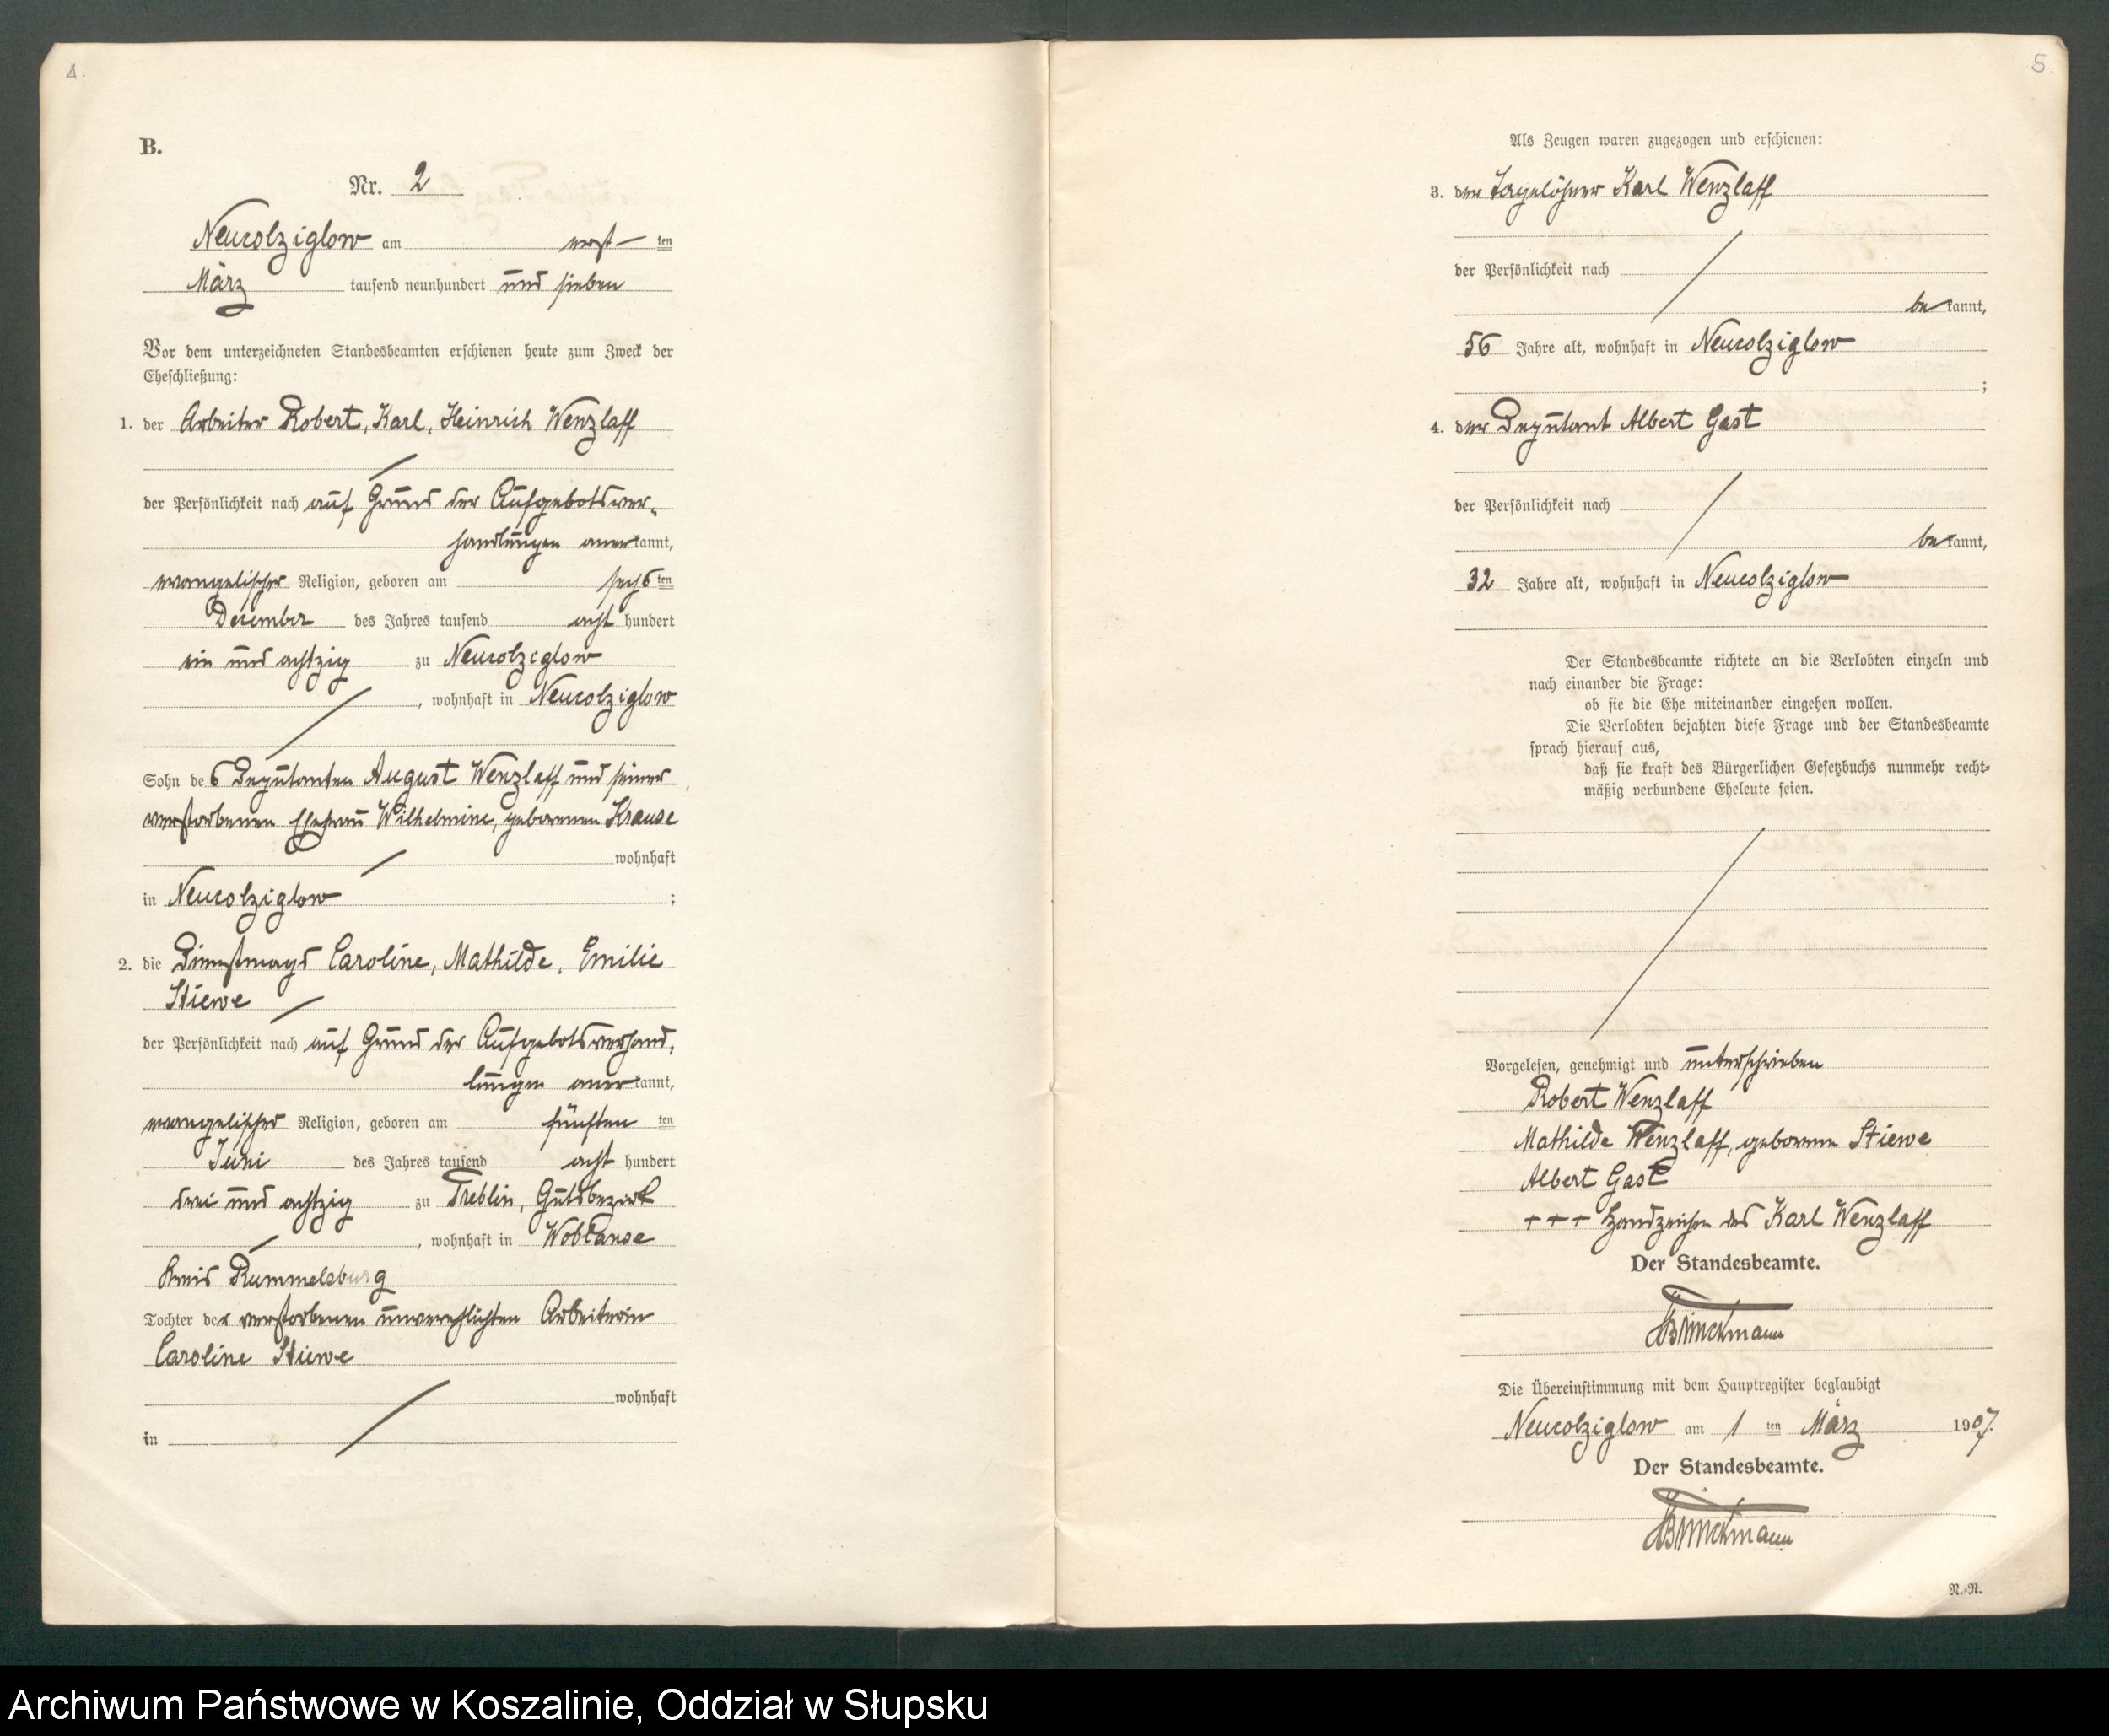 4.
B.
Nr. 2
Neucolziglow am erst ten
März tausend neunhundert und sieben
Vor dem unterzeichneten Standesbeamten erschienen heute zum Zweck der
Eheschließung:
1. der Arbeiter Robert, Karl, Heinrich Wenzlaff
der Persönlichkeit nach auf Grund der Aufgebotsver-
handlungen anerkannt,
evangelischer Religion, geboren am sechsten
Dezember des Jahres tausend acht hundert
ein und achtzig zu Neucolziglow
, wohnhaft in Neucolziglow
Sohn des Deputanten August Wenzlaff und seiner
verstorbenen Ehefrau Wilhelmine, geborenen Krause
wohnhaft
in Neucolziglow ;
2. die Dienstmagd Caroline, Mathilde, Emilie
Stiewe
der Persönlichkeit nach auf Grund der Aufgebotsverhand,
lungen anerkannt,
evangelischer Religion, geboren am fünften ten
Juni des Jahres tausend acht hundert
drei und achtzig zu Treblin, Gutsbezirk
, wohnhaft in Woblanse
Kreis Rummelsburg
Tochter der verstorbenen unverehlichten Arbeiterin
Caroline Stiewe
wohnhaft
in
5.
Als Zeugen waren zugezogen und erschienen:
3. der Tagelöhner Karl Wenzlaff
der Persönlichkeit nach
bekannt,
56 Jahre alt, wohnhaft in Neucolziglow
;
4. der Deputant Albert Gast
der Persönlichkeit nach
bekannt,
32 Jahre alt, wohnhaft in Neucolziglow
Der Standesbeamte richtete an die Verlobten einzeln und
nach einander die Frage:
ob sie die Ehe miteinander eingehen wollen.
Die Verlobten bejahten diese Frage und der Standesbeamte
sprach hierauf aus,
daß sie kraft des Bürgerlichen Gesetzbuchs nunmehr recht-
mäßig verbundene Eheleute seien.
Vorgelesen, genehmigt und unterschrieben
Robert Wenzlaff
Mathilde Wenzlaff, geborene Stiewe
Albert Gast
+++ Handzeichen des Karl Wenzlaff
Der Standesbeamte.
Brinckmann
Die Übereinstimmung mit dem Hauptregister beglaubigt
Neucolziglow am 1 ten März 1907.
Der Standesbeamte.
Brinckmann
N.-N.
Archiwum Państwowe w Koszalinie, Oddział w Słupsku